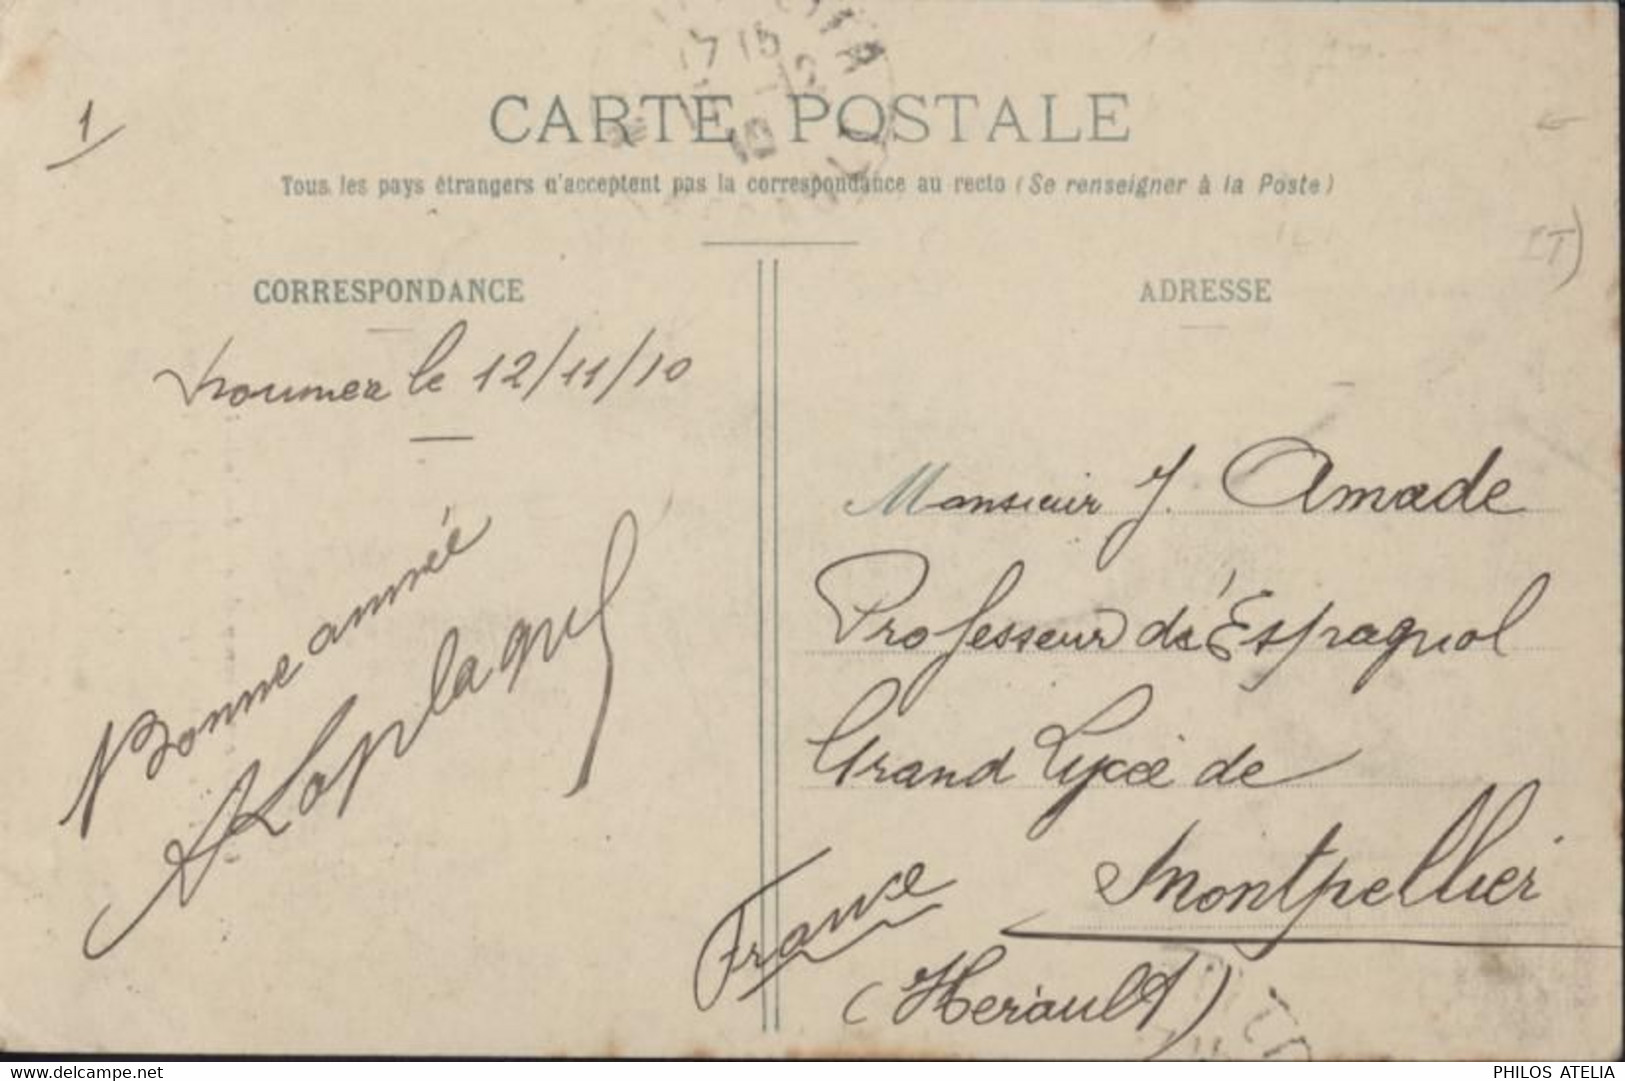 1
CARTE POSTALE
Tous les pays étrangers n'acceptent pas la correspondance au recto (Se renseigner à la Poste)
CORRESPONDANCE
le 12/11/10
Bonne année
ADRESSE
Monsieur J. Amade
Professeur d'Espagnol
Grand Lycée de
Montpellier
(Herault)
France
www.delcampe.net
PHILOS ATELIA